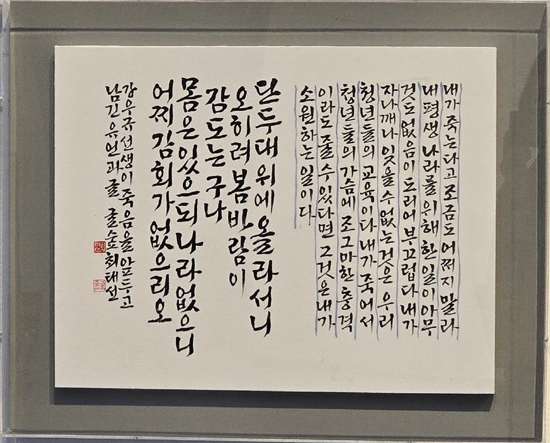 내가 죽는다고 조금도 어쩌지 말라
내 평생 나라를 위해 한 일이 아무
것도 없음이 도리어 부끄럽다 내가
자나깨나 잊을 수 없는 것은 우리
청년들의 교육이다 내가 죽어서
청년들의 가슴에 조그마한 충격
이라도 줄 수 있다면 그것은 내가
소원하는 일이다
단두대 위에 올라서니
오히려 봄바람이
감도는구나
몸은 있으되 나라 없으니
어찌 감회가 없으리오
강우규 선생이 죽음을 앞두고
남긴 유언과 글 글숲 최태선